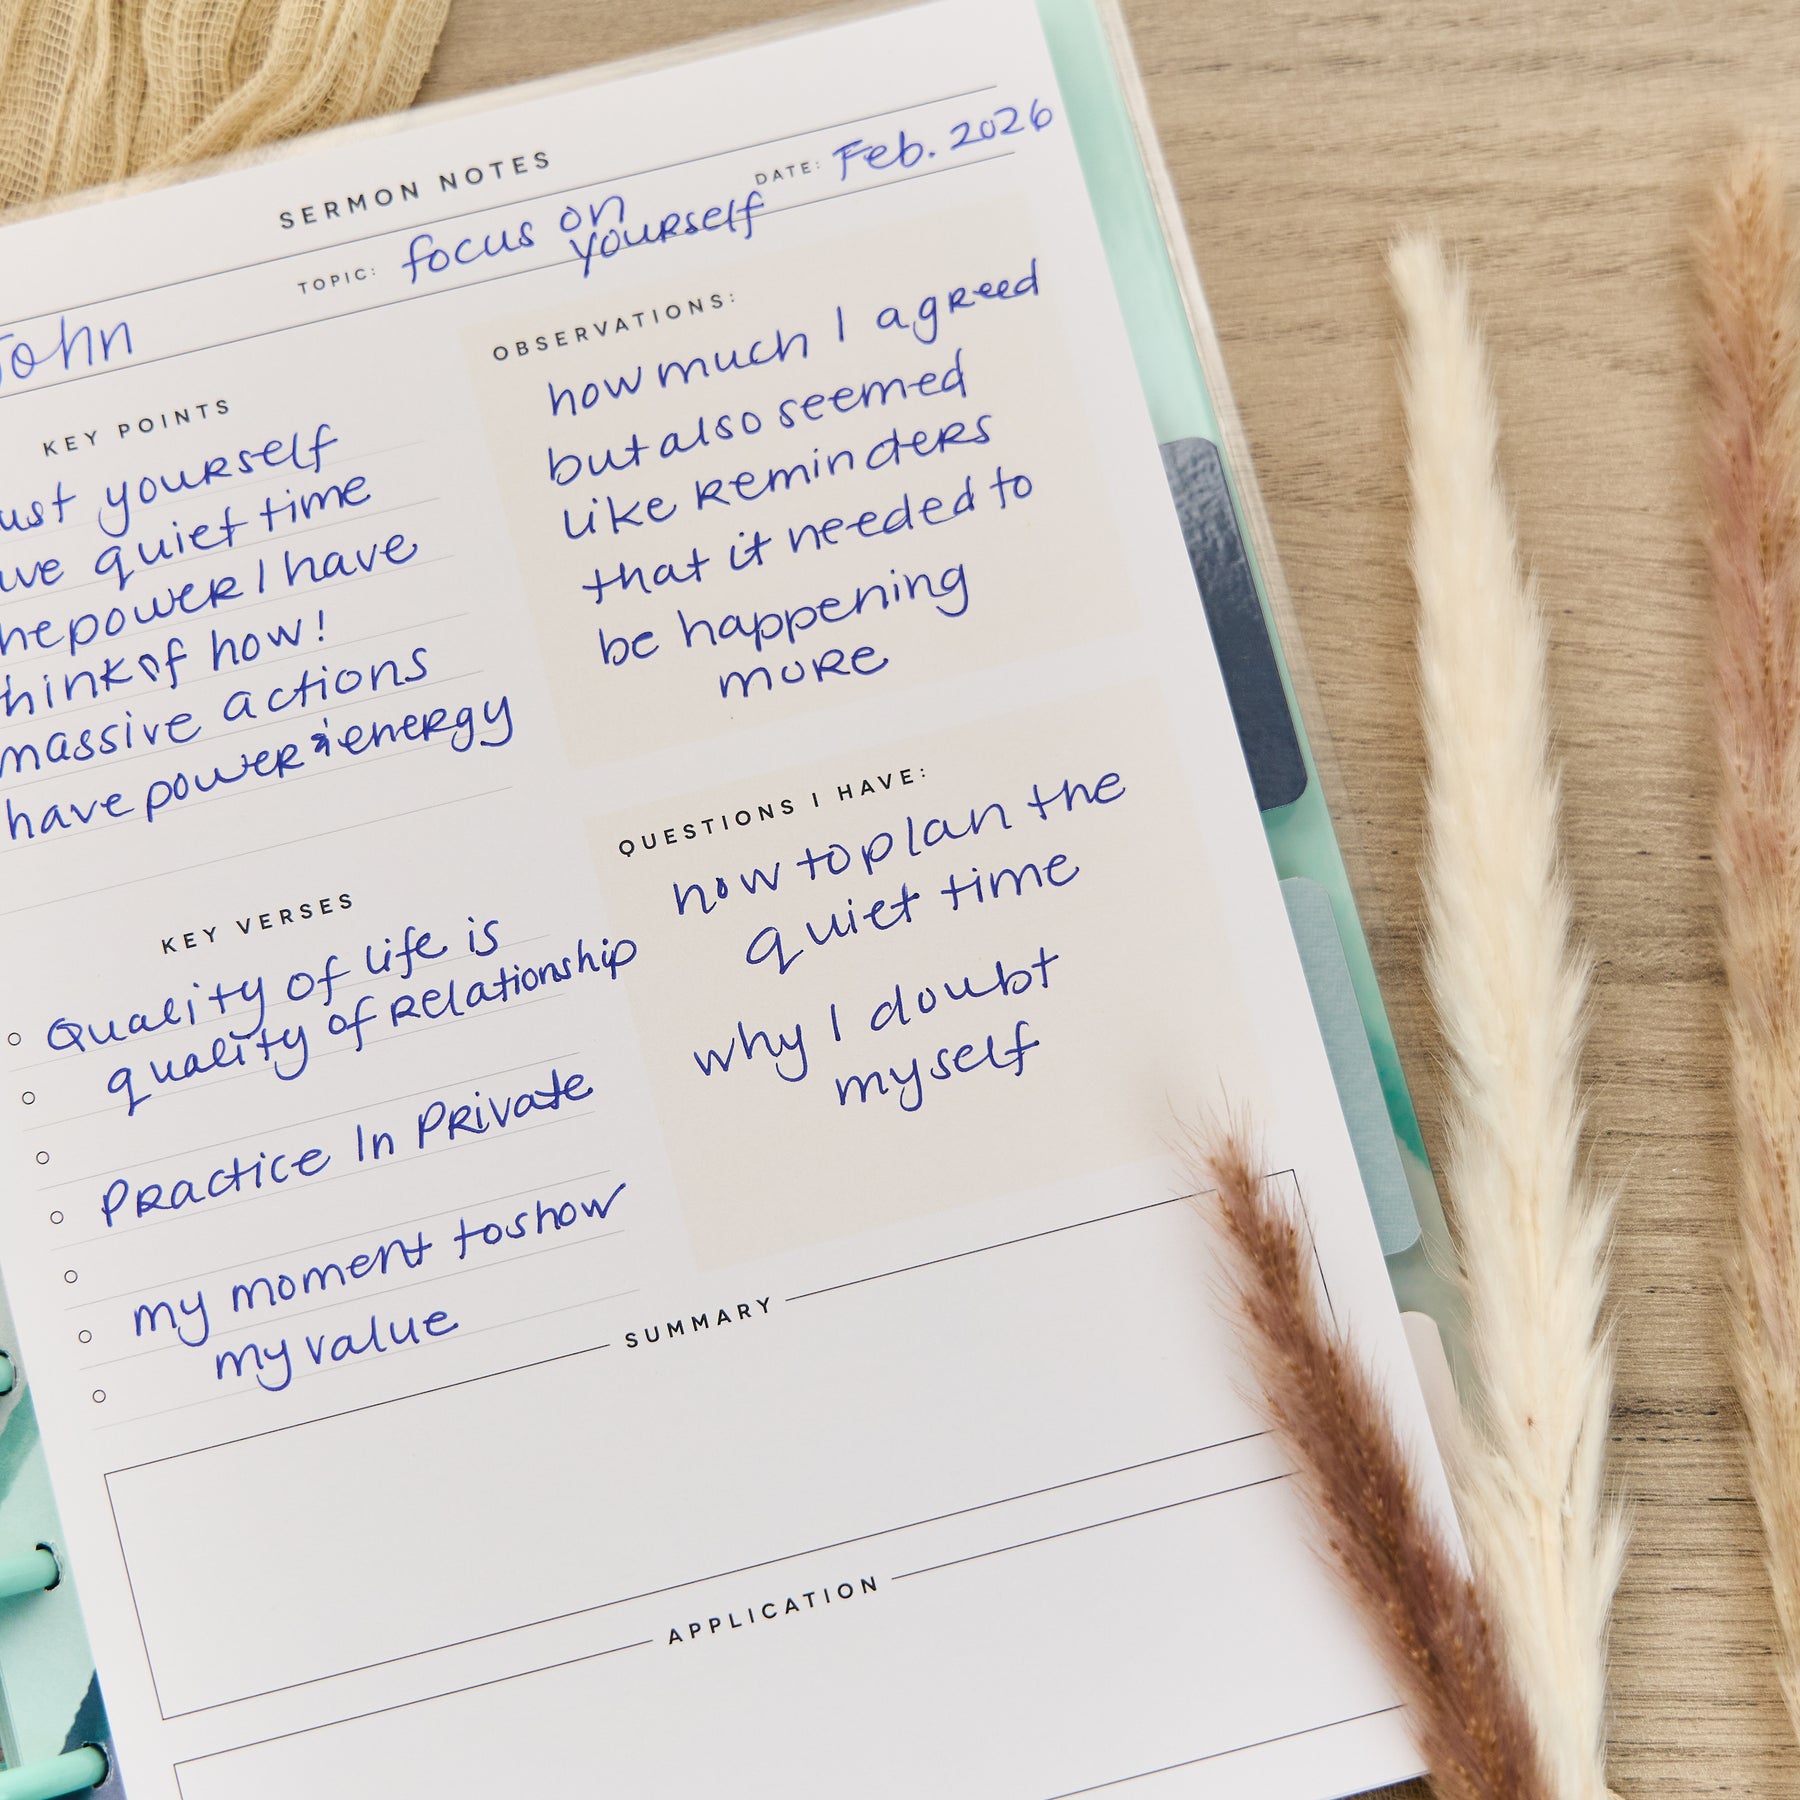 SERMON NOTES
DATE: Feb. 2026
TOPIC: focus on
yourself
John
KEY POINTS
ust yourself
ve quiet time
he power I have
hink of how!
massive actions
have power & energy
OBSERVATIONS:
how much I agreed
but also seemed
like reminders
that it needed to
be happening
more
KEY VERSES
Quality of life is
quality of relationship
Practice In Private
my moment to show
my value
QUESTIONS I HAVE:
how to plan the
quiet time
why I doubt
myself
SUMMARY
APPLICATION